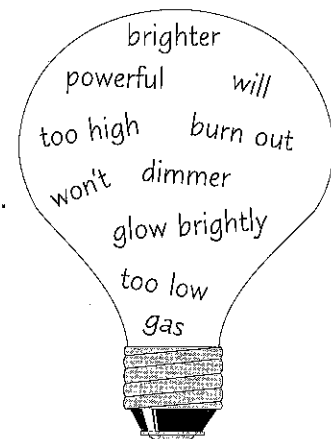 brighter
powerful will
too high burn out
won't dimmer
glow brightly
too low
gas